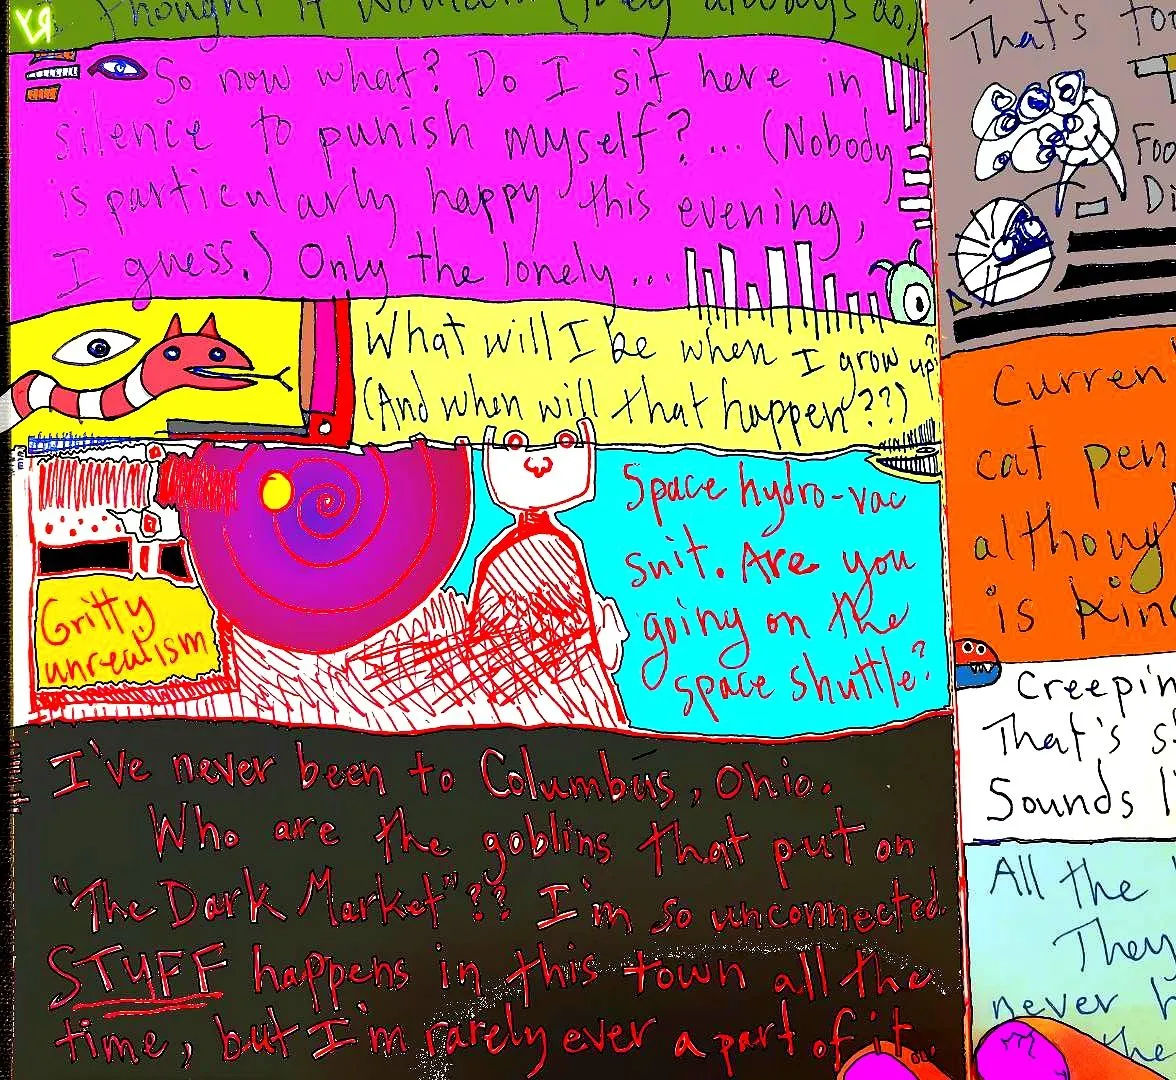 thought it would. (They always do.)
So now what? Do I sit here in
silence to punish myself?... (Nobody
is particularly happy this evening,
I guess.) Only the lonely...
What will I be when I grow up?
(And when will that happen??)
Space hydro-vac
suit. Are you
going on the
space shuttle?
Gritty
unrealism
I've never been to Columbus, Ohio.
Who are the goblins that put on
"The Dark Market"?? I'm so unconnected.
STUFF happens in this town all the
time, but I'm rarely ever a part of it...
That's
Curren
cat pen
althoug
is Kin
Creepin
That's s
Sounds l
All the
They
never h
the